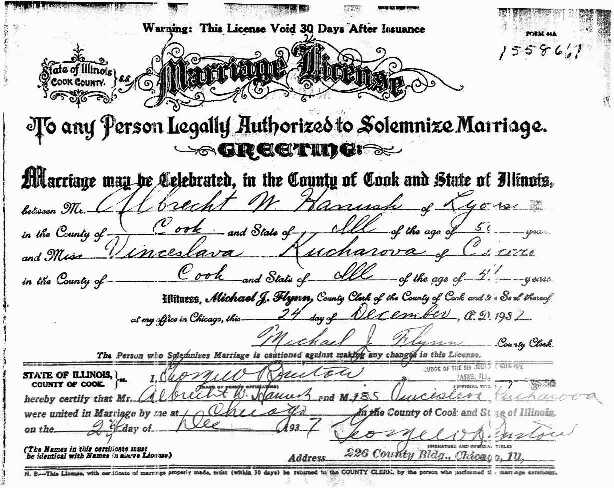 Warning: This License Void 30 Days After Issuance
FORM 44A
State of Illinois
COOK COUNTY.
SS
Marriage License
To any Person Legally Authorized to Solemnize Marriage.
GREETING:
Marriage may be Celebrated, in the County of Cook and State of Illinois,
between Mr. Albrecht W Hanush of Lyons
in the County of Cook and State of Ill of the age of years
and Miss Vinceslava Kucharova of Cicero
in the County of Cook and State of Ill of the age of years
Witness, Michael J. Flynn, County Clerk of the County of Cook and the Seal thereof
at my office in Chicago, this 24 day of December A.D. 1937
Michael J Flynn County Clerk
The Person who Solemnizes Marriage is cautioned against making any changes in this License.
STATE OF ILLINOIS,
COUNTY OF COOK. ss. I,
hereby certify that Mr. Albrecht W. Hanush and Miss Vinceslava Kucharova
were united in Marriage by me at Chicago in the County of Cook and State of Illinois,
on the day of Dec 1937
(The Names in this certificate
must be identical with Names in above License)
Address 226 County Bldg., Chicago, Ill.
N. B.—This License, with certificate of marriage properly made, must (within 30 days) be returned to the COUNTY CLERK, by the person who performed the marriage ceremony.